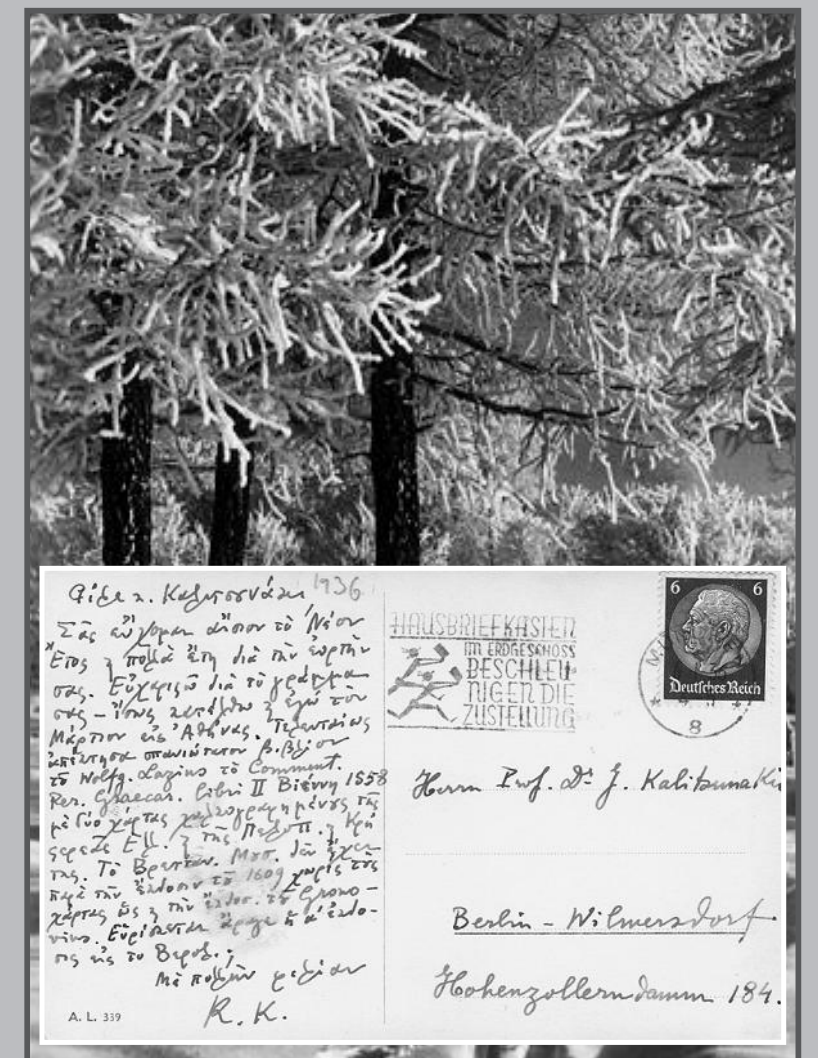 Φίλε κ. Καλιτσουνάκη 1936
Σᾶς εὔχομαι αἴσιον τὸ Νέον
Ἔτος κ πολλὰ ἔτη διὰ τὴν ἑορτήν
σας. Εὐχαριστῶ διὰ τὸ γράμμα
σας – ἴσως κατέλθω κ ἐγὼ τὸν
Μάρτιον εἰς Ἀθήνας. Τελευταίως
ἀπέκτησα σπανιώτατον βιβλίον
τοῦ Wolfg. Lazius τὸ Comment.
Rer. Graecar. Libri II Βιέννη 1558
μὲ δύο χάρτας χαλκογραφημένους τῆς
στερεᾶς Ἑλλ. κ τῆς Πελοπ. κ Κρή
της. Τὸ Βρετταν. Μουσ. δὲν ἔχει
παρὰ τὴν ἔκδοσιν τοῦ 1609 χωρὶς τοὺς
χάρτας ὡς κ τὴν ἔκδοσ. τοῦ Grono–
vius. Εὑρίσκεται ἄραγε ἡ α' ἔκδο–
σις εἰς τὸ Βερολ.;
Μὲ πολλὴν φιλίαν
R. K.
A. L. 339
HAUSBRIEFKASTEN
IM ERDGESCHOSS
BESCHLEU-
NIGEN DIE
ZUSTELLUNG
8
6 6
Deutsches Reich
Herrn Prof. Dr J. Kalitsunakis
Berlin – Wilmersdorf
Hohenzollerndamm 184.